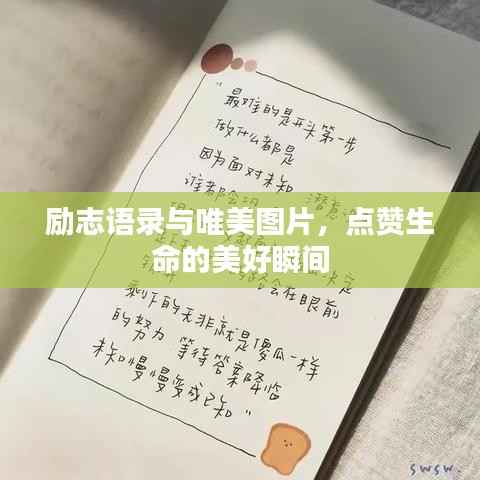 "最难的是开头第一步
做什么都是
因为面对未知
谁都会
潜意
定
会在眼前
励志语录与唯美图片，点赞生
命的美好瞬间
剩下的无非就是傻瓜一样
的努力 等待答案降临
未知慢慢变成已知"
swsw.